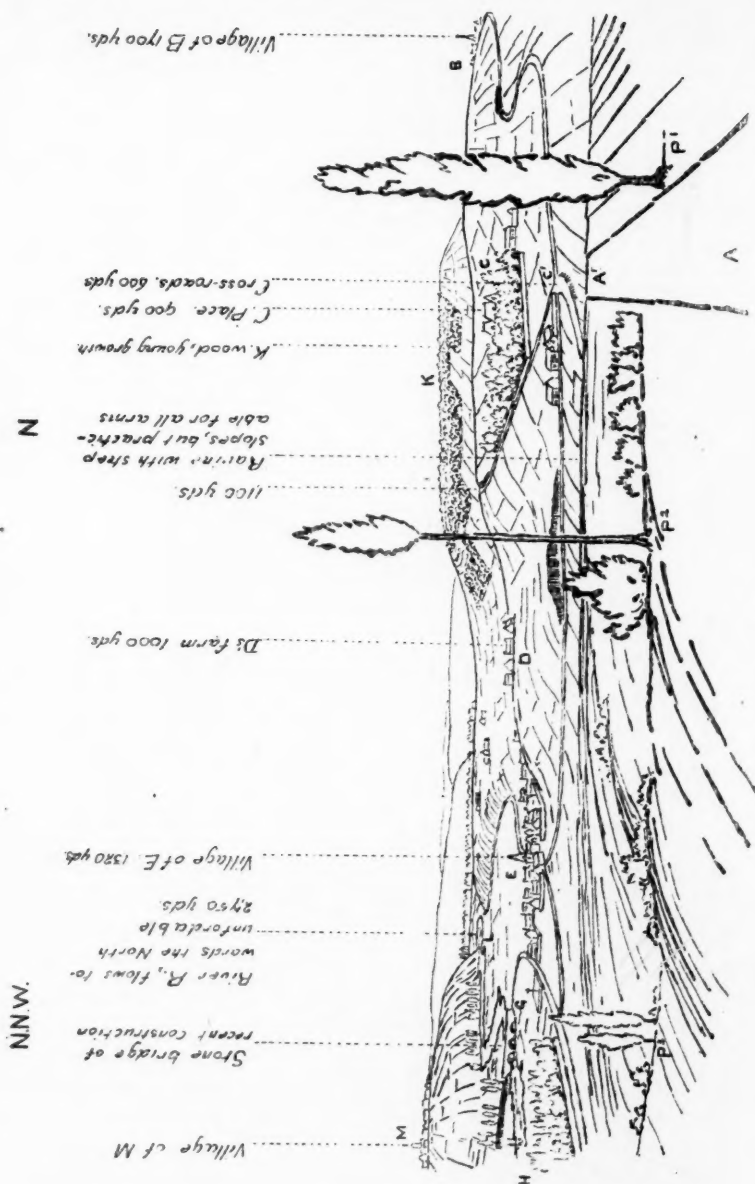 N.N.W.
N
Village of M
Stone bridge of
recent construction
River R., flows to-
wards the North
unfordable
2,750 yds.
Village of E. 1320 yds.
D's farm 1000 yds.
1,100 yds.
Ravine with steep
slopes, but practic-
able for all arms
K. wood, young growth.
C Place. 900 yds.
Cross-roads. 600 yds
Village of B 1700 yds.
M
K
B
H
G
E
D
C
C'
A'
A
P3
P2
P1